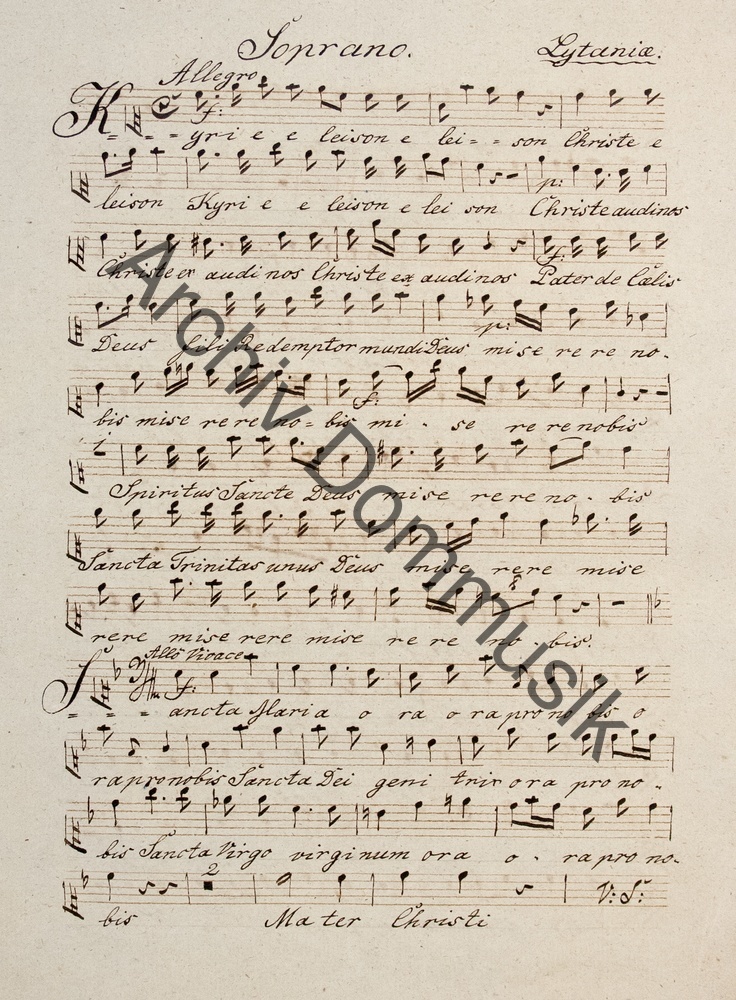 Soprano. Lytaniæ.
Allegro
f:
K - - - yri e e leison e lei = = son Christe e
leison Kyri e e leison e lei son Christe audi nos
p:
Christe ex audi nos Christe ex audi nos Pater de Cœlis
f:
Deus fili Redemptor mundi Deus mi se re re no-
p:
bis mise re re no = bis mi - se re re nobis
f:
Spiritus Sancte Deus mise re re no - bis
Sancta Trinitas unus Deus mise rere mise
rere mise rere mise re re no - bis.
Allo Vivace
f:
S - - - ancta Maria o ra o ra pro no bis o
ra pro nobis Sancta Dei geni trix ora pro no -
bis Sancta Virgo virginum ora o - ra pro no-
2
V: S:
bis Ma ter Christi
Archiv Dommusik